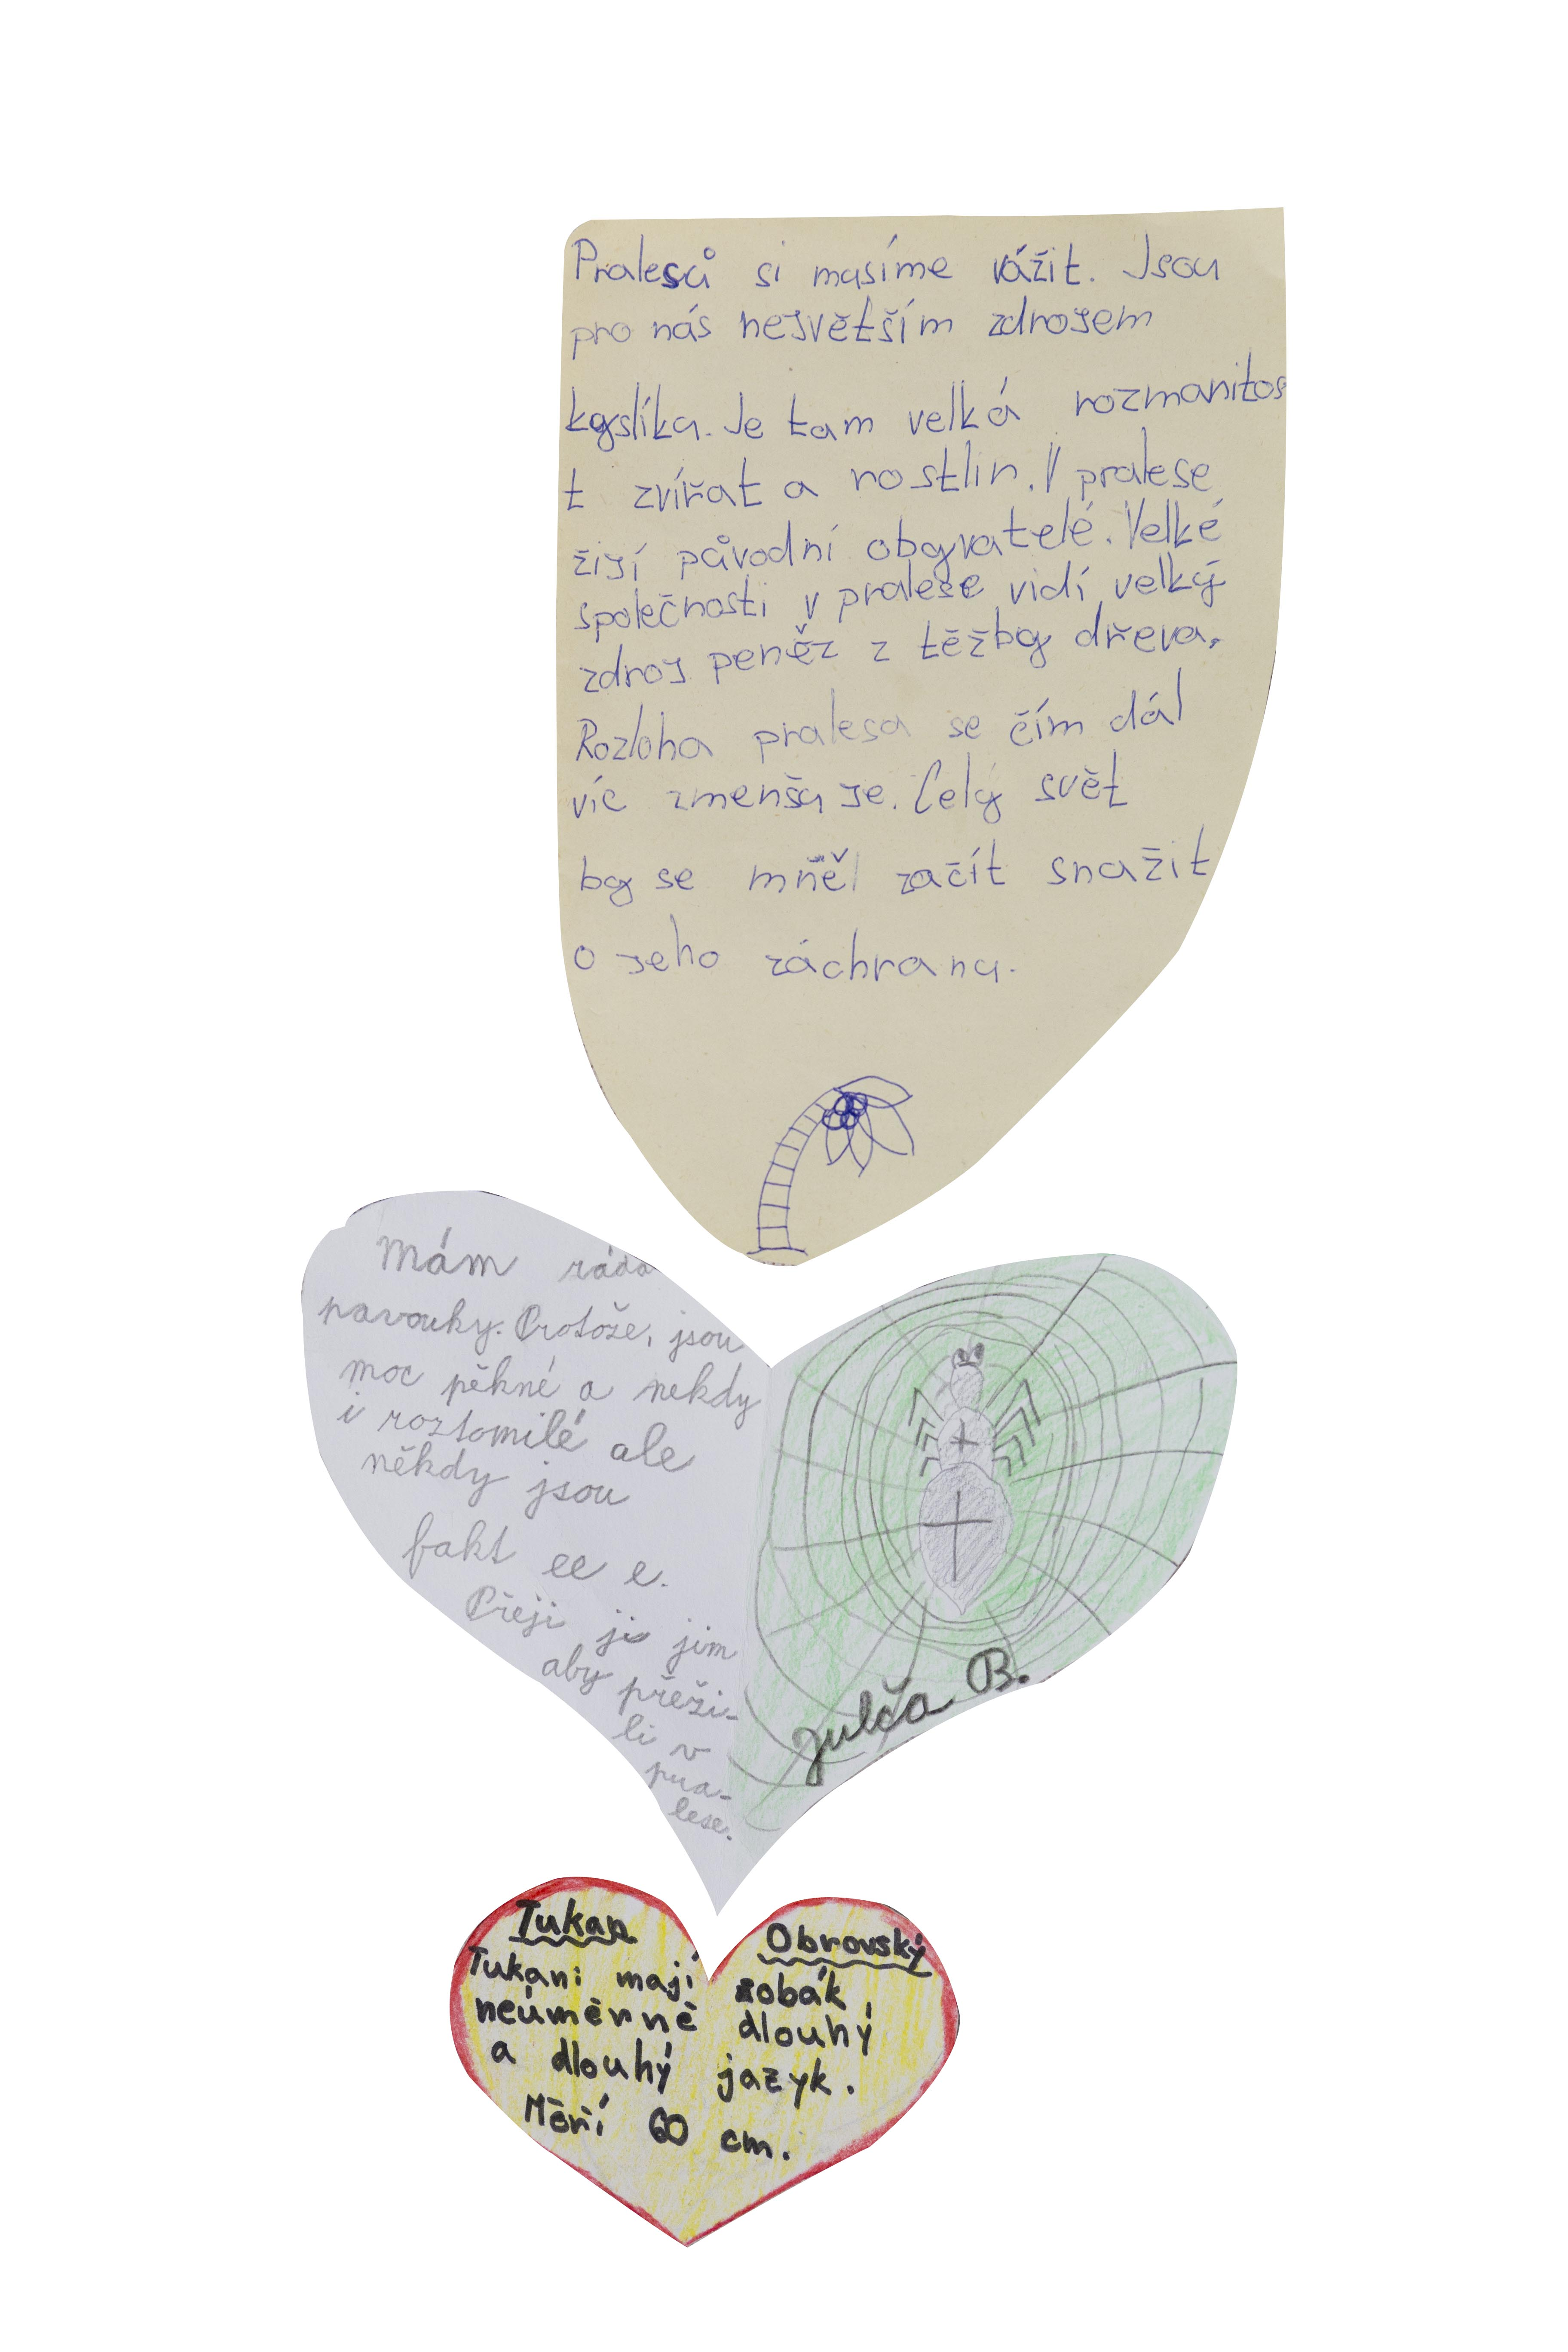 Pralesů si musíme vážit. Jsou
pro nás největším zdrojem
kyslíku. Je tam velká rozmanitos
t zvířat a rostlin. V pralese
žijí původní obyvatelé. Velké
společnosti v pralese vidí velký
zdroj peněz z těžby dřeva.
Rozloha pralesa se čím dál
víc zmenšuje. Celý svět
by se mňěl začít snažit
o jeho záchranu.
Mám ráda
pavouky. Protože, jsou
moc pěkné a nekdy
i roztomilé ale
někdy jsou
fakt ee e.
Přeji ji jim
aby přeži-
li v
pra-
lese.
Julča B.
Tukan Obrovský
Tukani mají zobák
neúměrně dlouhý
a dlouhý jazyk.
Měří 60 cm.